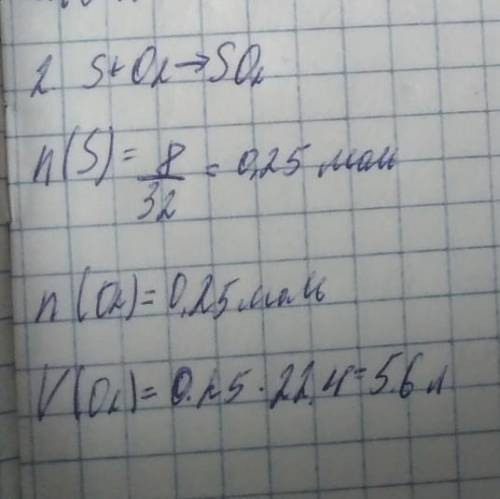 2. S+O₂→SO₂
n(S)= 8/32 = 0,25 моль
n(O₂)=0,25 моль
V(O₂)= 0.25 · 22.4=5.6 л